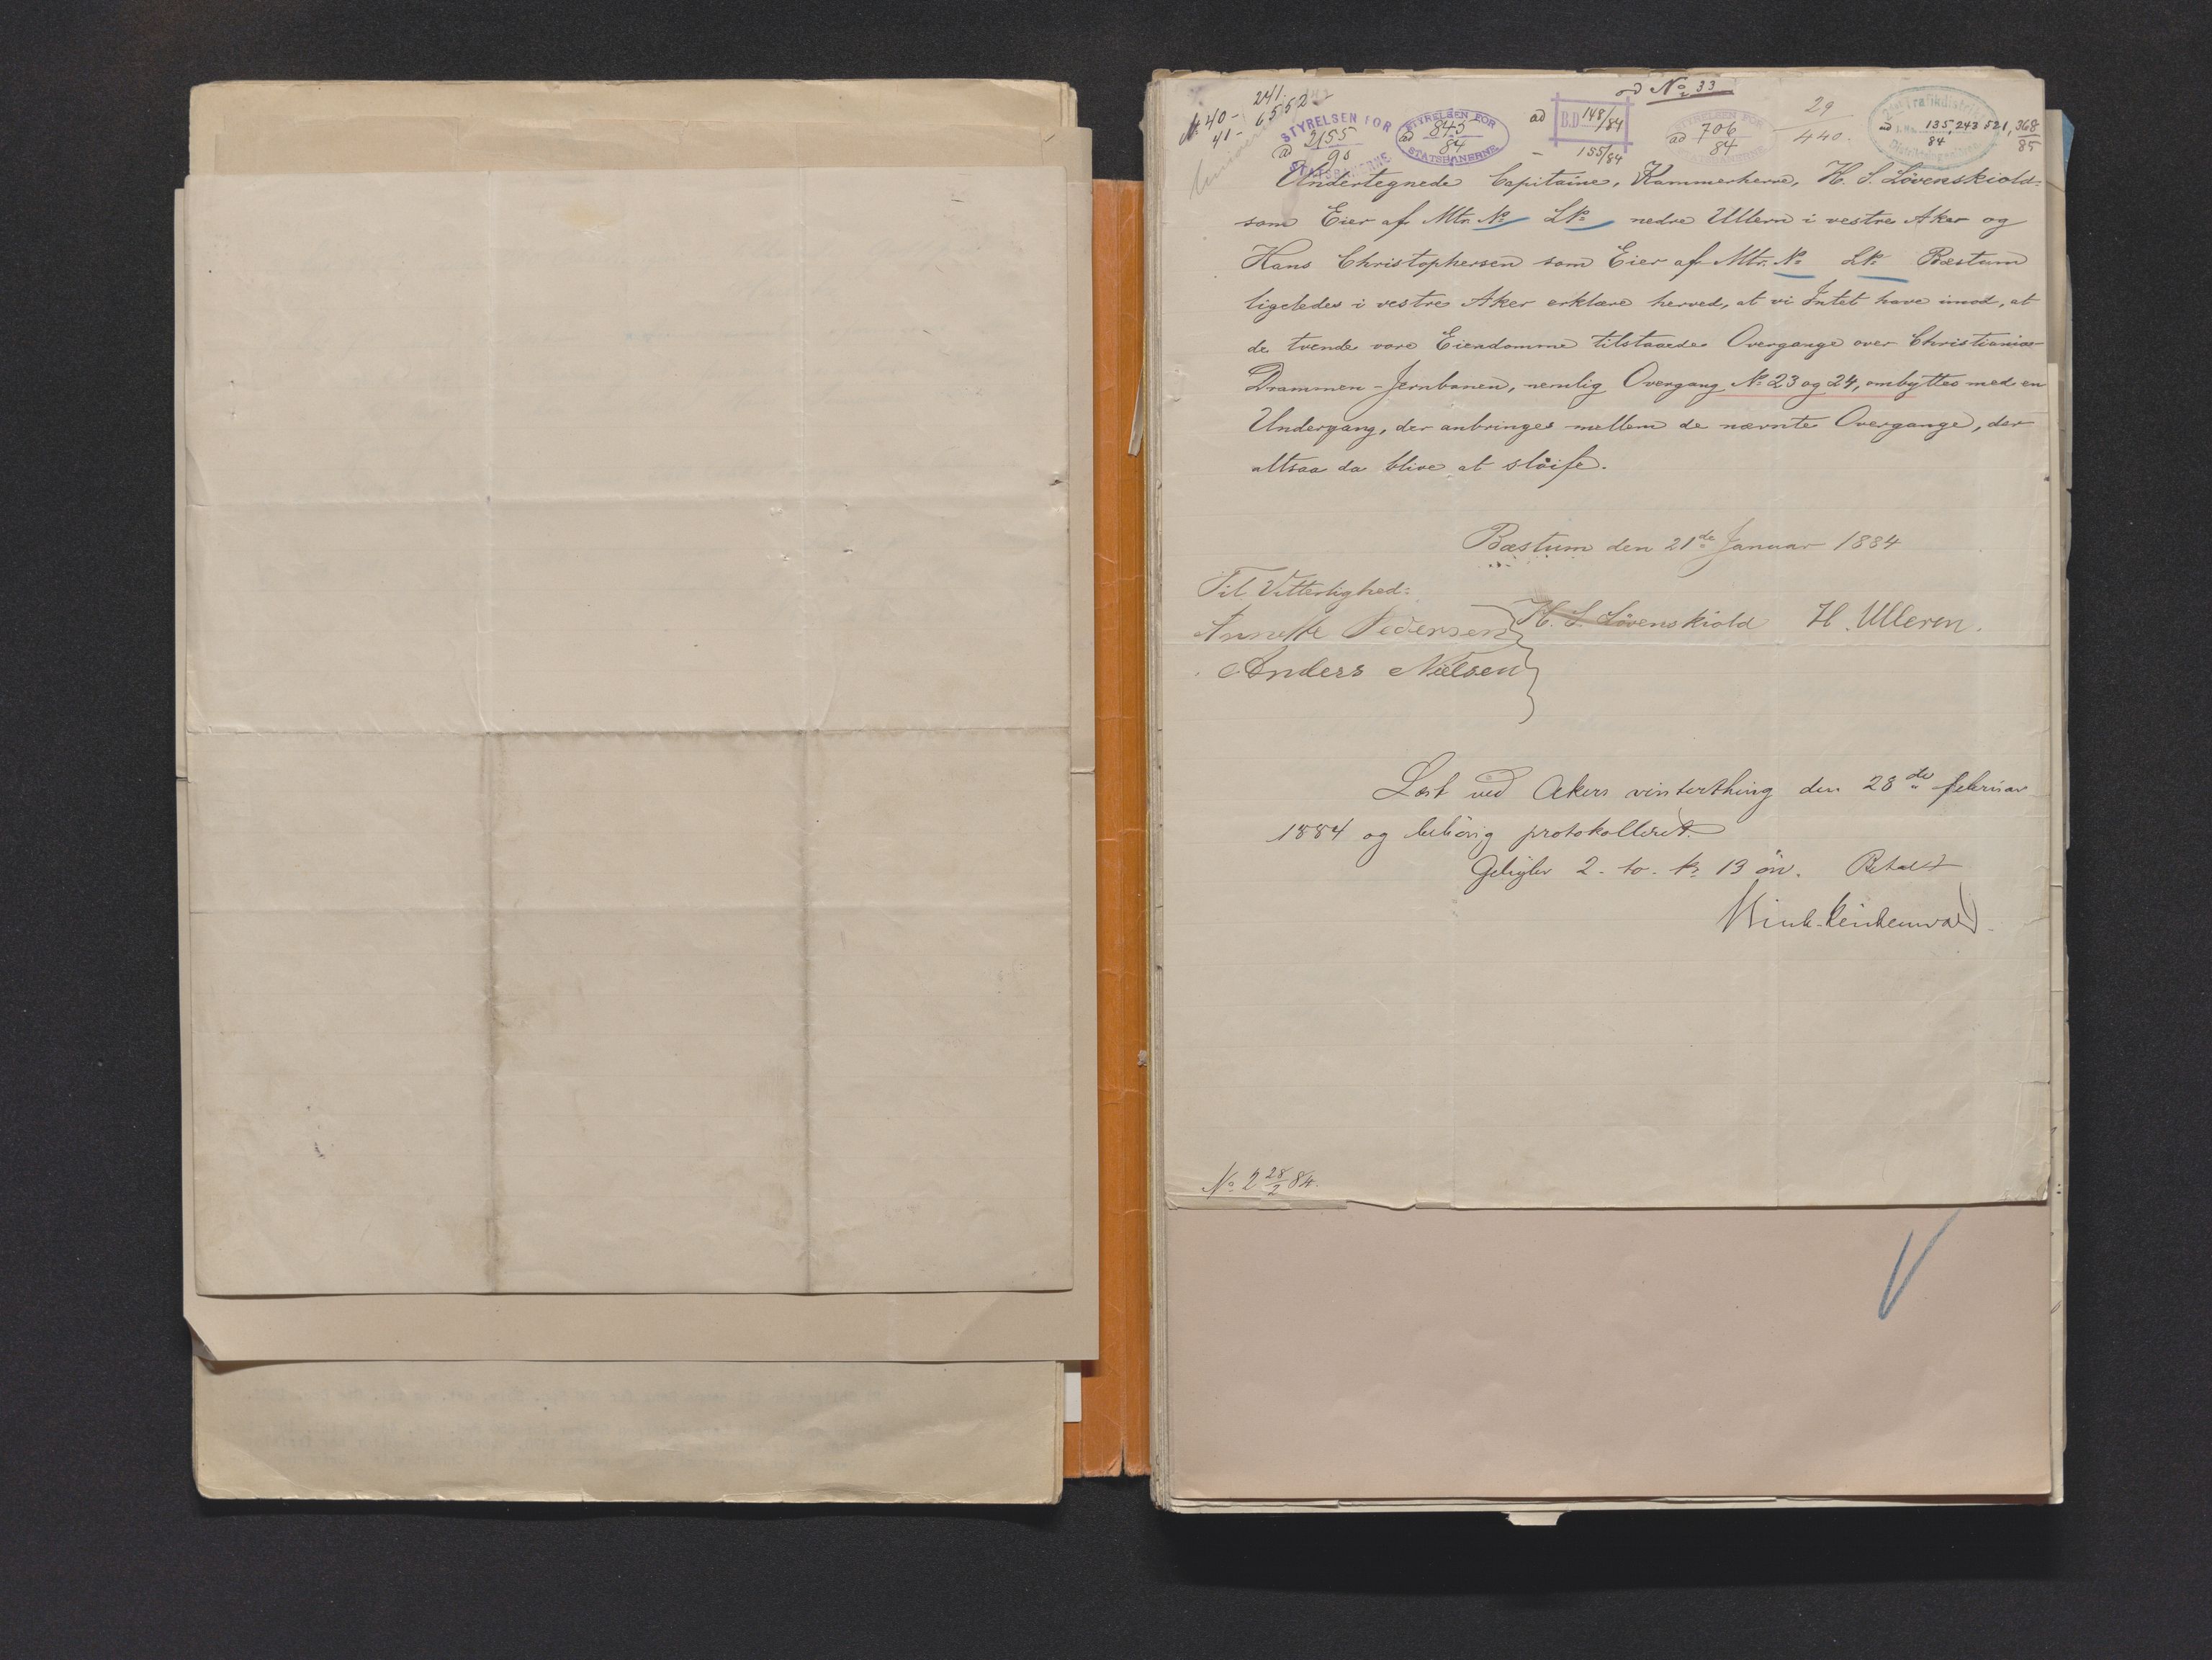 ad No 33
241.
40 - 6552
41 -
STYRELSEN FOR
ad 2155
90
STATSBANERNE
STYRELSEN FOR
ad 845
84
STATSBANERNE
ad B.D 148/84
- 155/84
STYRELSEN FOR
ad 706
84
STATSBANERNE
29
440.
Trafikdistrikt
ad J. No. 135, 243 521, 368
84 85
Undertegnede Capitaine, Kammerherre, H. S. Lövenskiold
som Eier af Mtr. No LNo nedre Ullern i vestre Aker og
Hans Christophersen som Eier af Mtr. No LNo Bæstum
ligeledes i vestre Aker erklære herved, at vi Intet have imod, at
de tvende vore Eiendomme tilstaaede Overgange over Christiania-
Drammen-Jernbanen, nemlig Overgang No 23 og 24, ombyttes med en
Undergang, der anbringes mellem de nævnte Overgange, der
altsaa da blive at slöife.
Bæstum den 21de Januar 1884
Til Vitterlighed:
H. S. Lövenskiold H. Ullern.
Annette Pedersen
Anders Nielsen
Læst ved Akers vinterthing den 28de februar
1884 og behörig protokolleret.
Gebyhr 2 - to - kr 13 öre. Betalt
No 2 28/2 84.